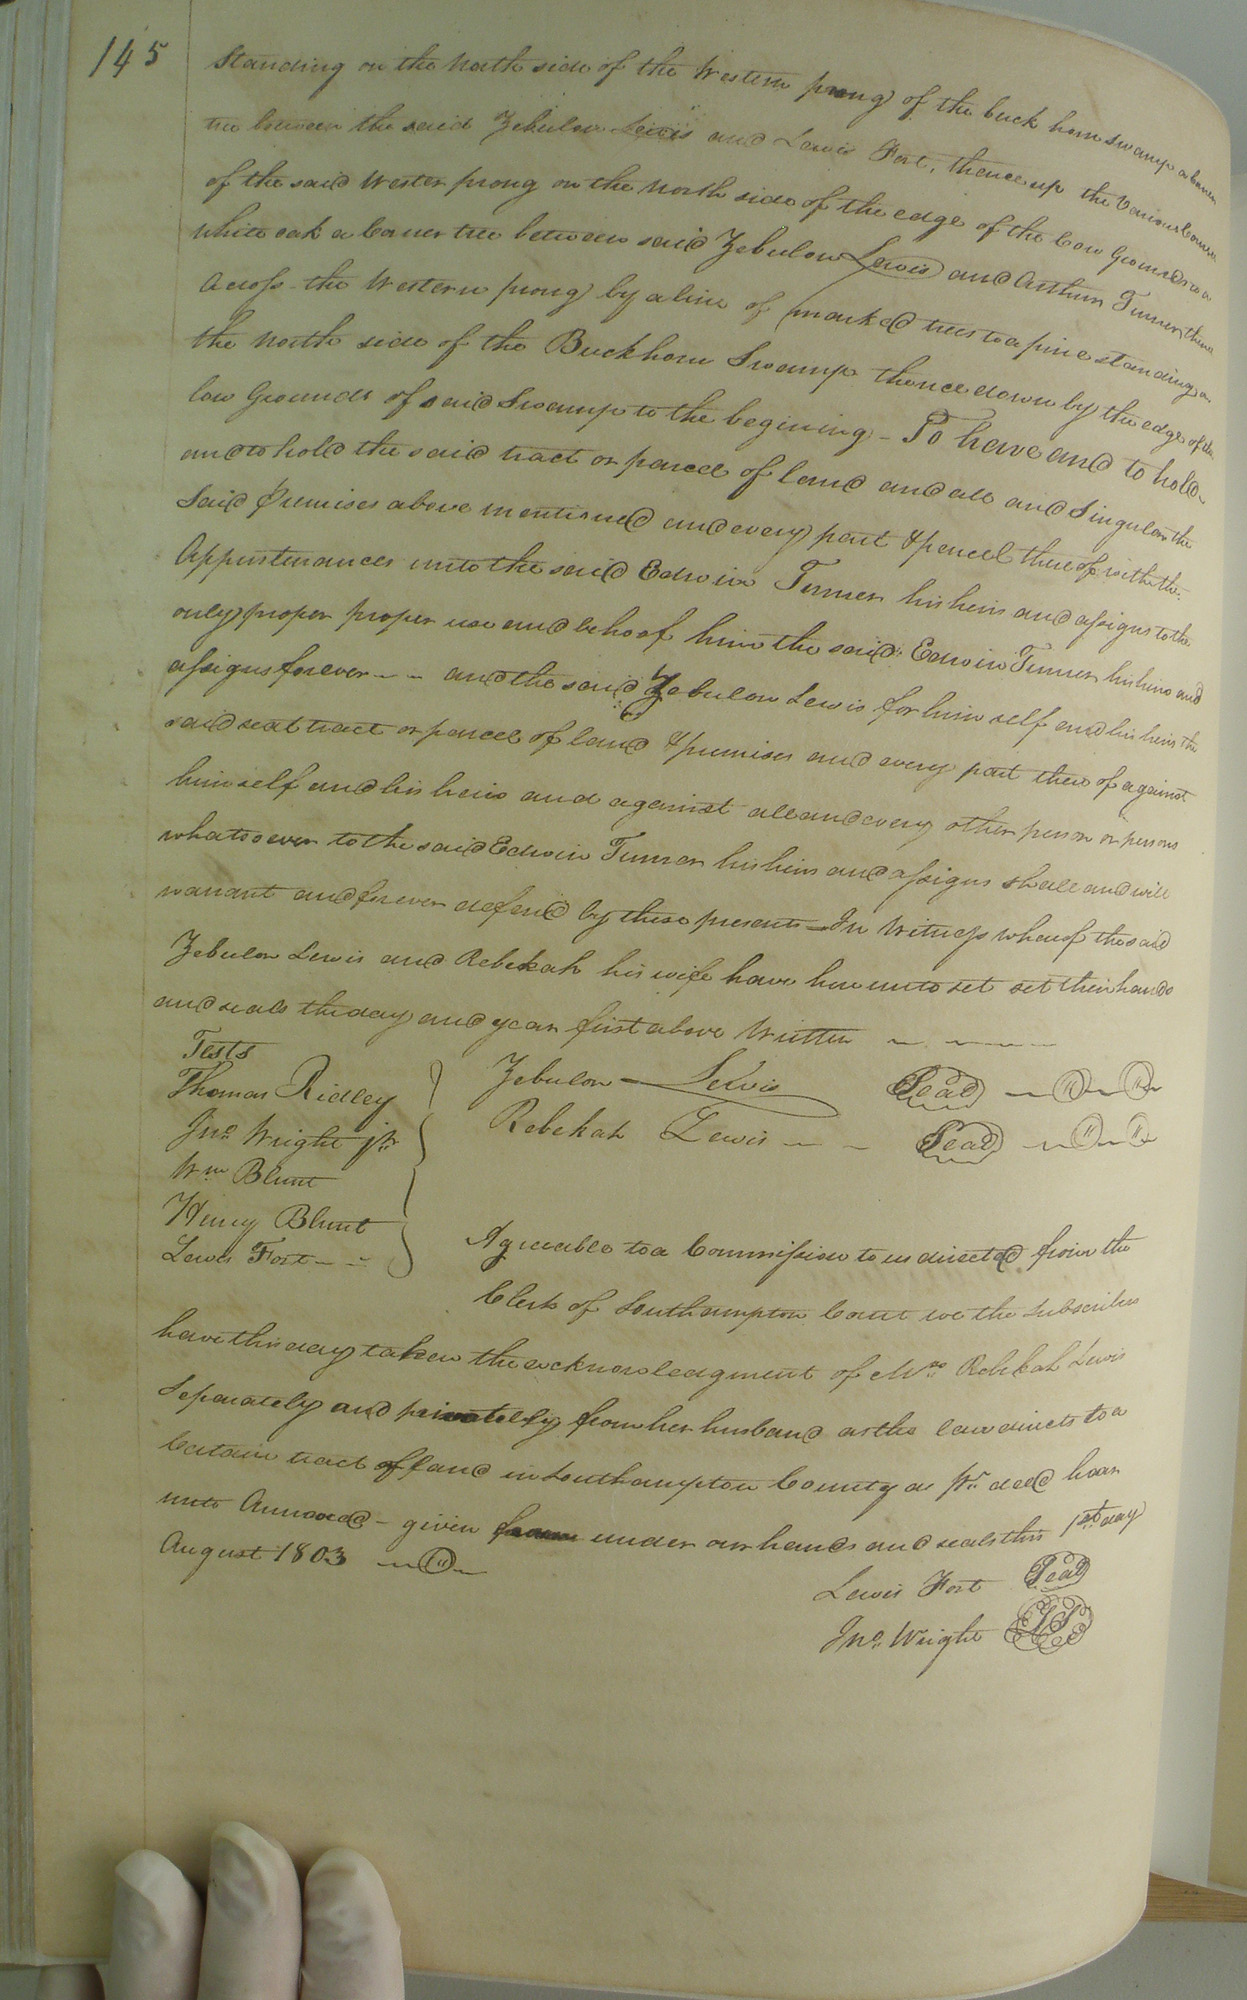 145
Standing on the North side of the Western prong of the buck horn swamp a corner
tree between the said Zebulon Lewis and Lewis Fort, thence up the Various Courses
of the said Wester prong on the North side of the edge of the Low Grounds to a
White oak a Corner tree between said Zebulon Lewis and Arthur Turner, thence
Across the Western prong by a line of marked trees to a pine standing on
the North side of the Buckhorn Swamp thence down by the edge of the
low Grounds of said Swamp to the begining - To have and to hold
and to hold the said tract or parcel of land and all and Singular the
Said Premises above mentioned and every part & parcel thereof with the
Appurtenances unto the said Edwin Turner his heirs and assigns to the
only proper proper use and behoof him the said Edwin Turner his heirs and
assigns forever - - and the said Zebulon Lewis for him self and his heirs the
said seat tract or parcel of land & premises and every part there of against
himself and his heirs and against all and every other person or persons
whatsoever to the said Edwin Turner his heirs and assigns shall and will
warrant and forever defend by these presents = In Witness whereof the said
Zebulon Lewis and Rebekah his wife have here unto set set their hands
and seals the day and year first above Written
Tests
Thomas Ridley
Jno. Wright jr.
Wm Blunt
Henry Blunt
Lewis Fort
Zebulon Lewis Seal
Rebekah Lewis Seal
Agreeable to a Commission to us directed from the
Clerk of Southampton Court we the Subscribers
have this day taken the acknowledgment of Mrs. Rebekah Lewis
Seperately and privatelly from her husband as the law directs to a
Certain tract of land in Southampton County as pr. deed hear
unto Annexed - given under our hands and seals this 1st. day
August 1803
Lewis Fort Seal
Jno. Wright LS